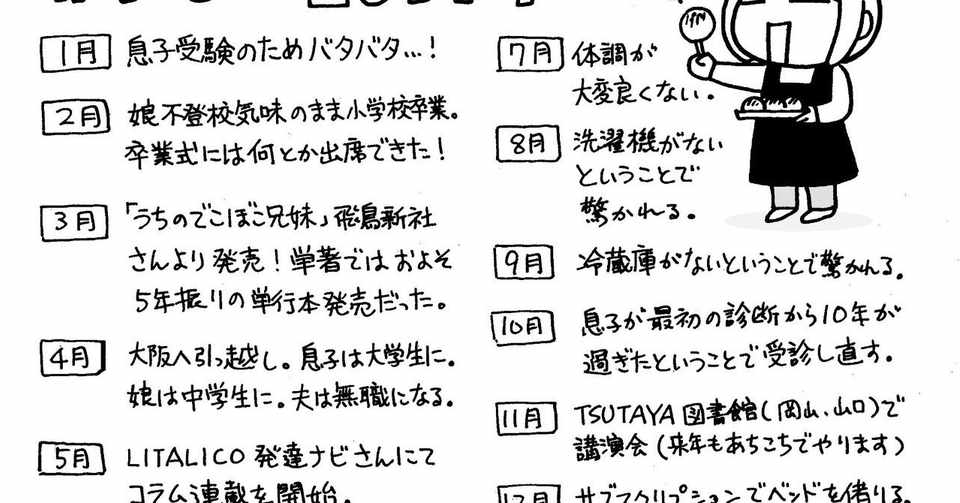 1月 息子受験のためバタバタ…!
2月 娘不登校気味のまま小学校卒業。
卒業式には何とか出席できた!
3月 「うちのでこぼこ兄妹」飛鳥新社
さんより発売!単著ではおよそ
5年振りの単行本発売だった。
4月 大阪へ引っ越し。息子は大学生に。
娘は中学生に。夫は無職になる。
5月 LITALICO発達ナビさんにて
コラム連載を開始。
7月 体調が
大変良くない。
8月 洗濯機がない
ということで
驚かれる。
9月 冷蔵庫がないということで驚かれる。
10月 息子が最初の診断から10年が
過ぎたということで受診し直す。
11月 TSUTAYA図書館(岡山、山口)で
講演会(来年もあちこちでやります)
12月 サブスクリプションでベッドを借りる。